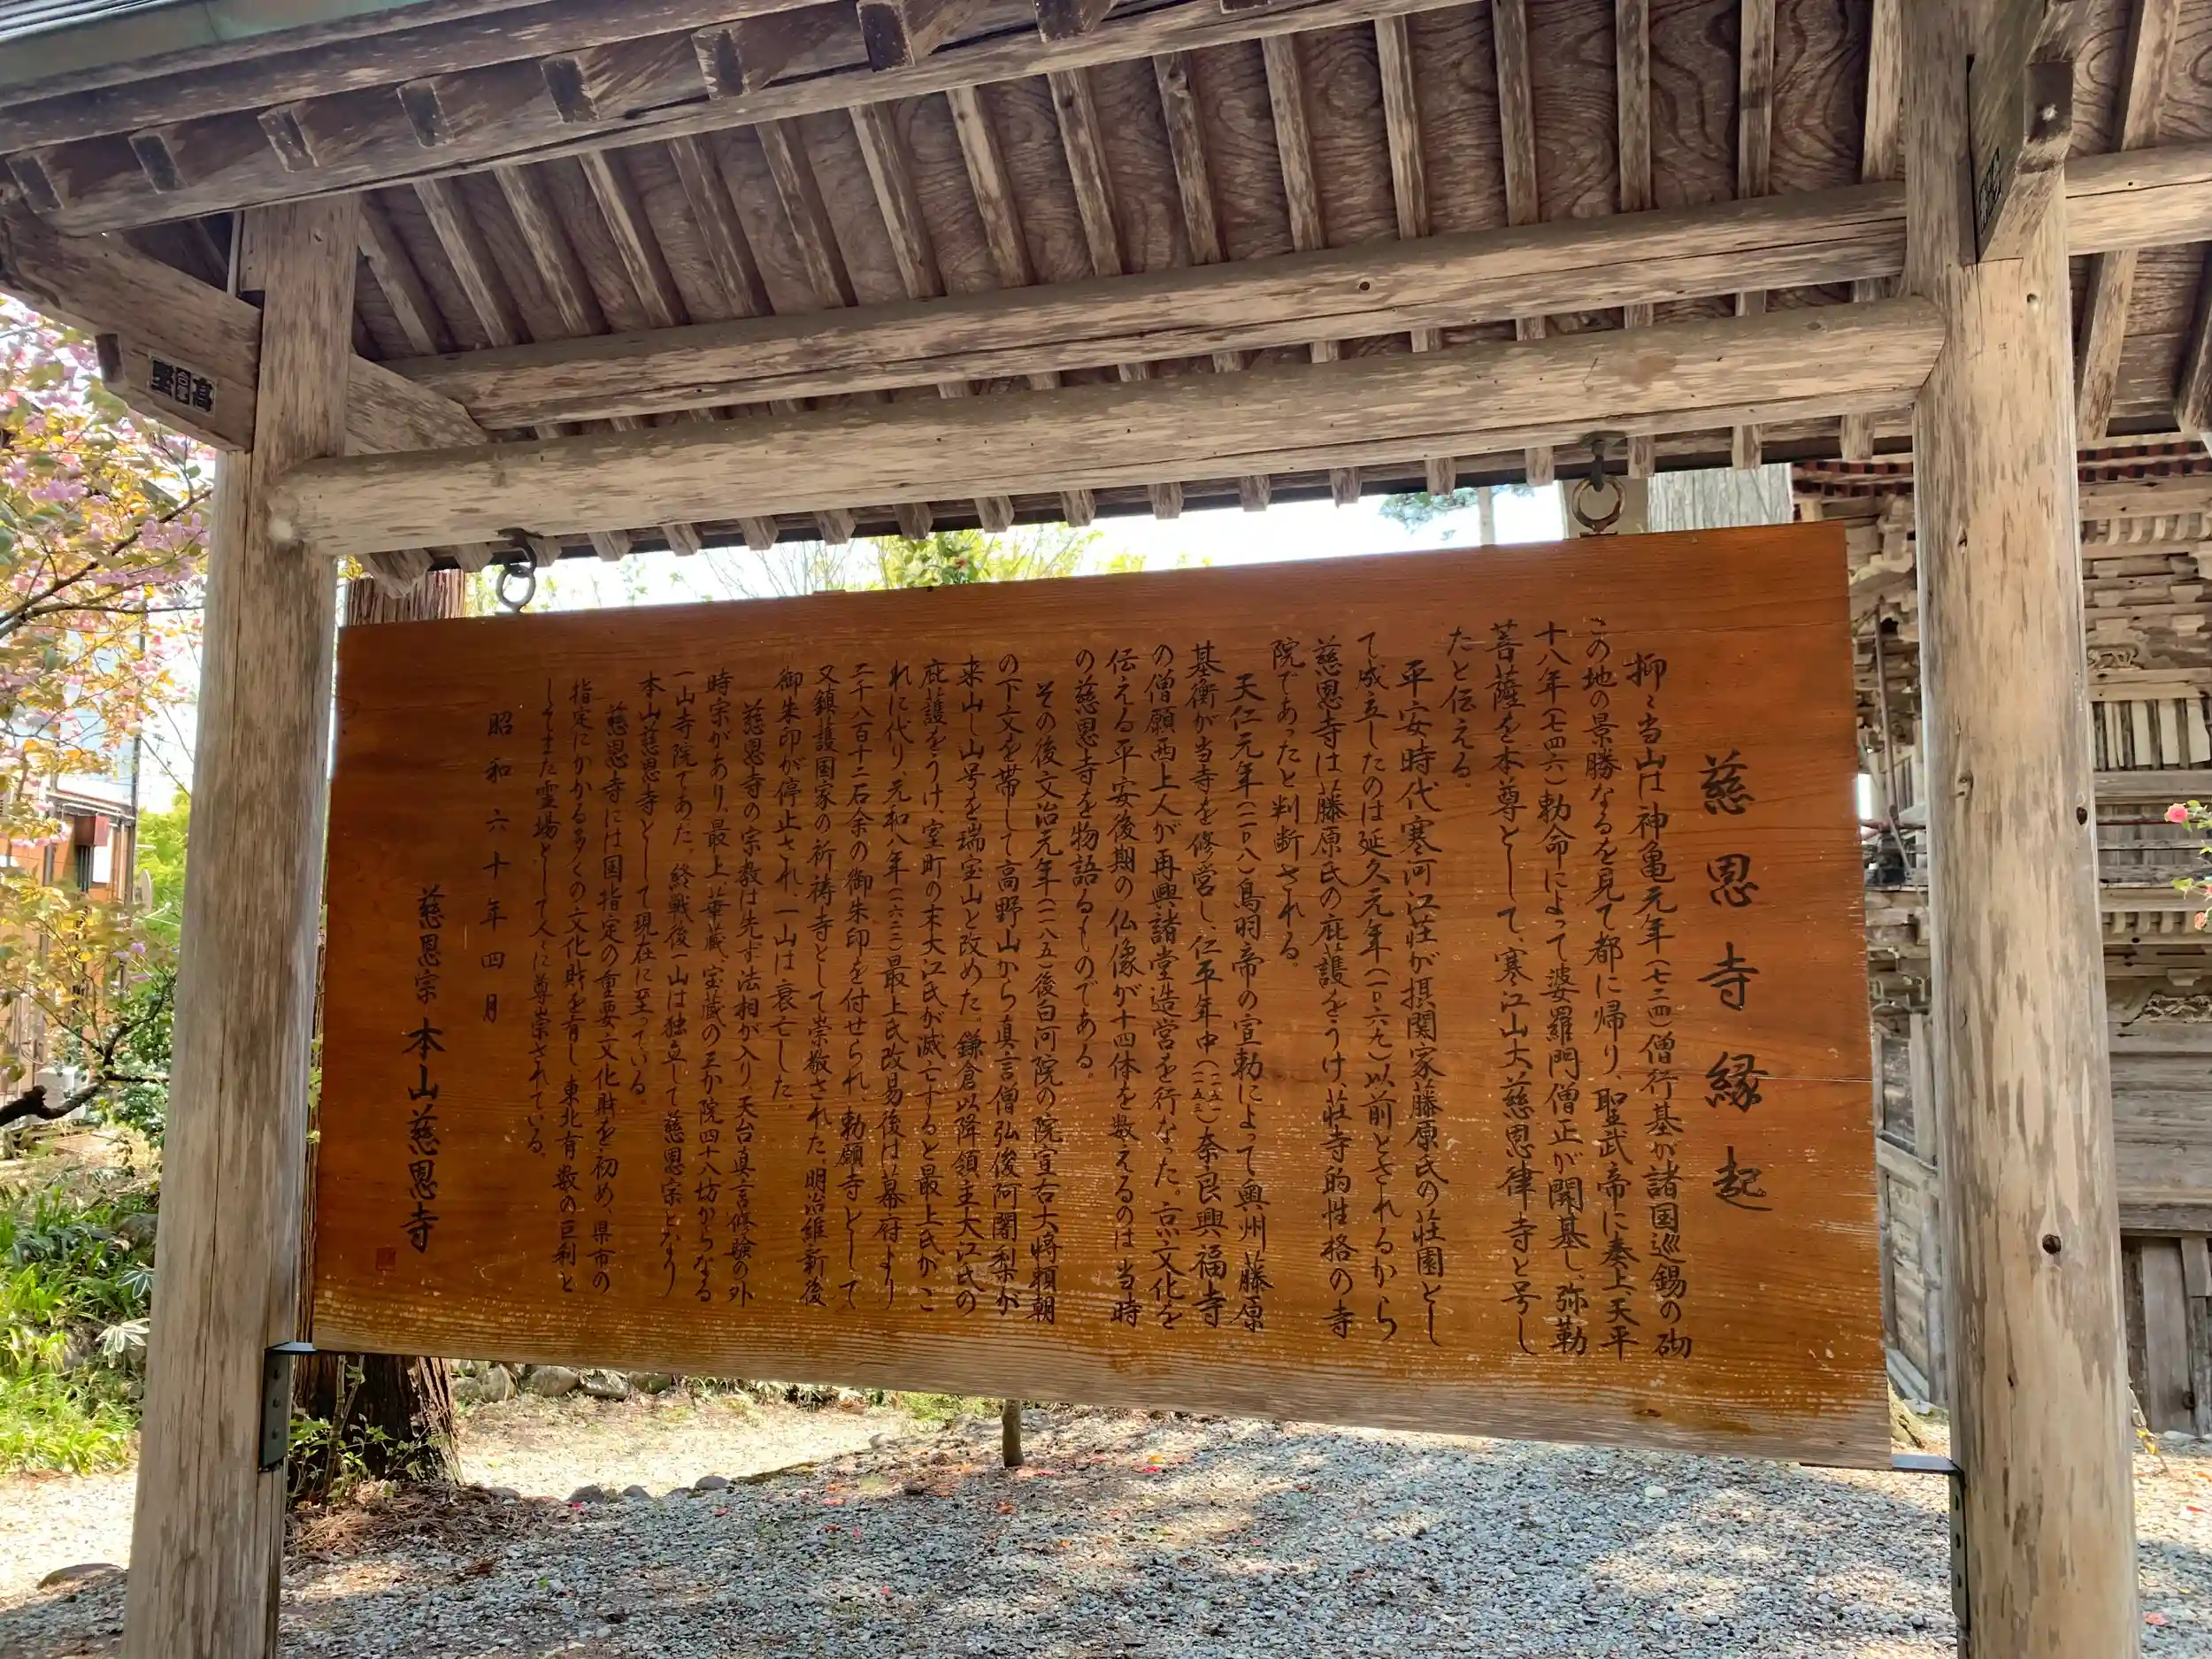 慈恩寺縁起
抑々当山は神亀元年(七二四)僧行基が諸国巡錫の砌
この地の景勝なるを見て都に帰り、聖武帝に奏上、天平
十八年(七四六)勅命によって婆羅門僧正が開基し、弥勒
菩薩を本尊として、寒江山大慈恩律寺と号し
たと伝える。
平安時代寒河江荘が摂関家藤原氏の荘園とし
て成立したのは延久元年(一〇六九)以前とされるから
慈恩寺は藤原氏の庇護をうけ、荘寺的性格の寺
院であったと判断される。
天仁元年(一一〇八)鳥羽帝の宣勅によって奥州藤原
基衡が当寺を修営し、仁平年中(一一五一〜一一五三)奈良興福寺
の僧願西上人が再興諸堂造営を行なった。京文化を
伝える平安後期の仏像が十四体を数えるのは当時
の慈恩寺を物語るものである。
その後文治元年(一一八五)後白河院の院宣右大将頼朝
の下文を帯して高野山から真言僧弘俊阿闍梨が
来山し山号を瑞宝山と改めた。鎌倉以降領主大江氏の
庇護をうけ、室町の末大江氏が滅亡すると最上氏がこ
れに代り、元和八年(一六二二)最上氏改易後は幕府より
二千八百十二石余の御朱印を付せられ、勅願寺として
又鎮護国家の祈祷寺として崇敬された。明治維新後
御朱印が停止され、一山は衰亡した。
慈恩寺の宗教は先ず法相が入り、天台真言修験の外
時宗があり、最上、華蔵、宝蔵の三か院四十八坊からなる
一山寺院であった。終戦後一山は独立して慈恩宗となり
本山慈恩寺として現在に至っている。
慈恩寺には国指定の重要文化財を初め、県市の
指定にかかる多くの文化財を有し東北有数の巨刹と
してまた霊場として人々に尊崇されている。
昭和六十年四月
慈恩宗 本山慈恩寺